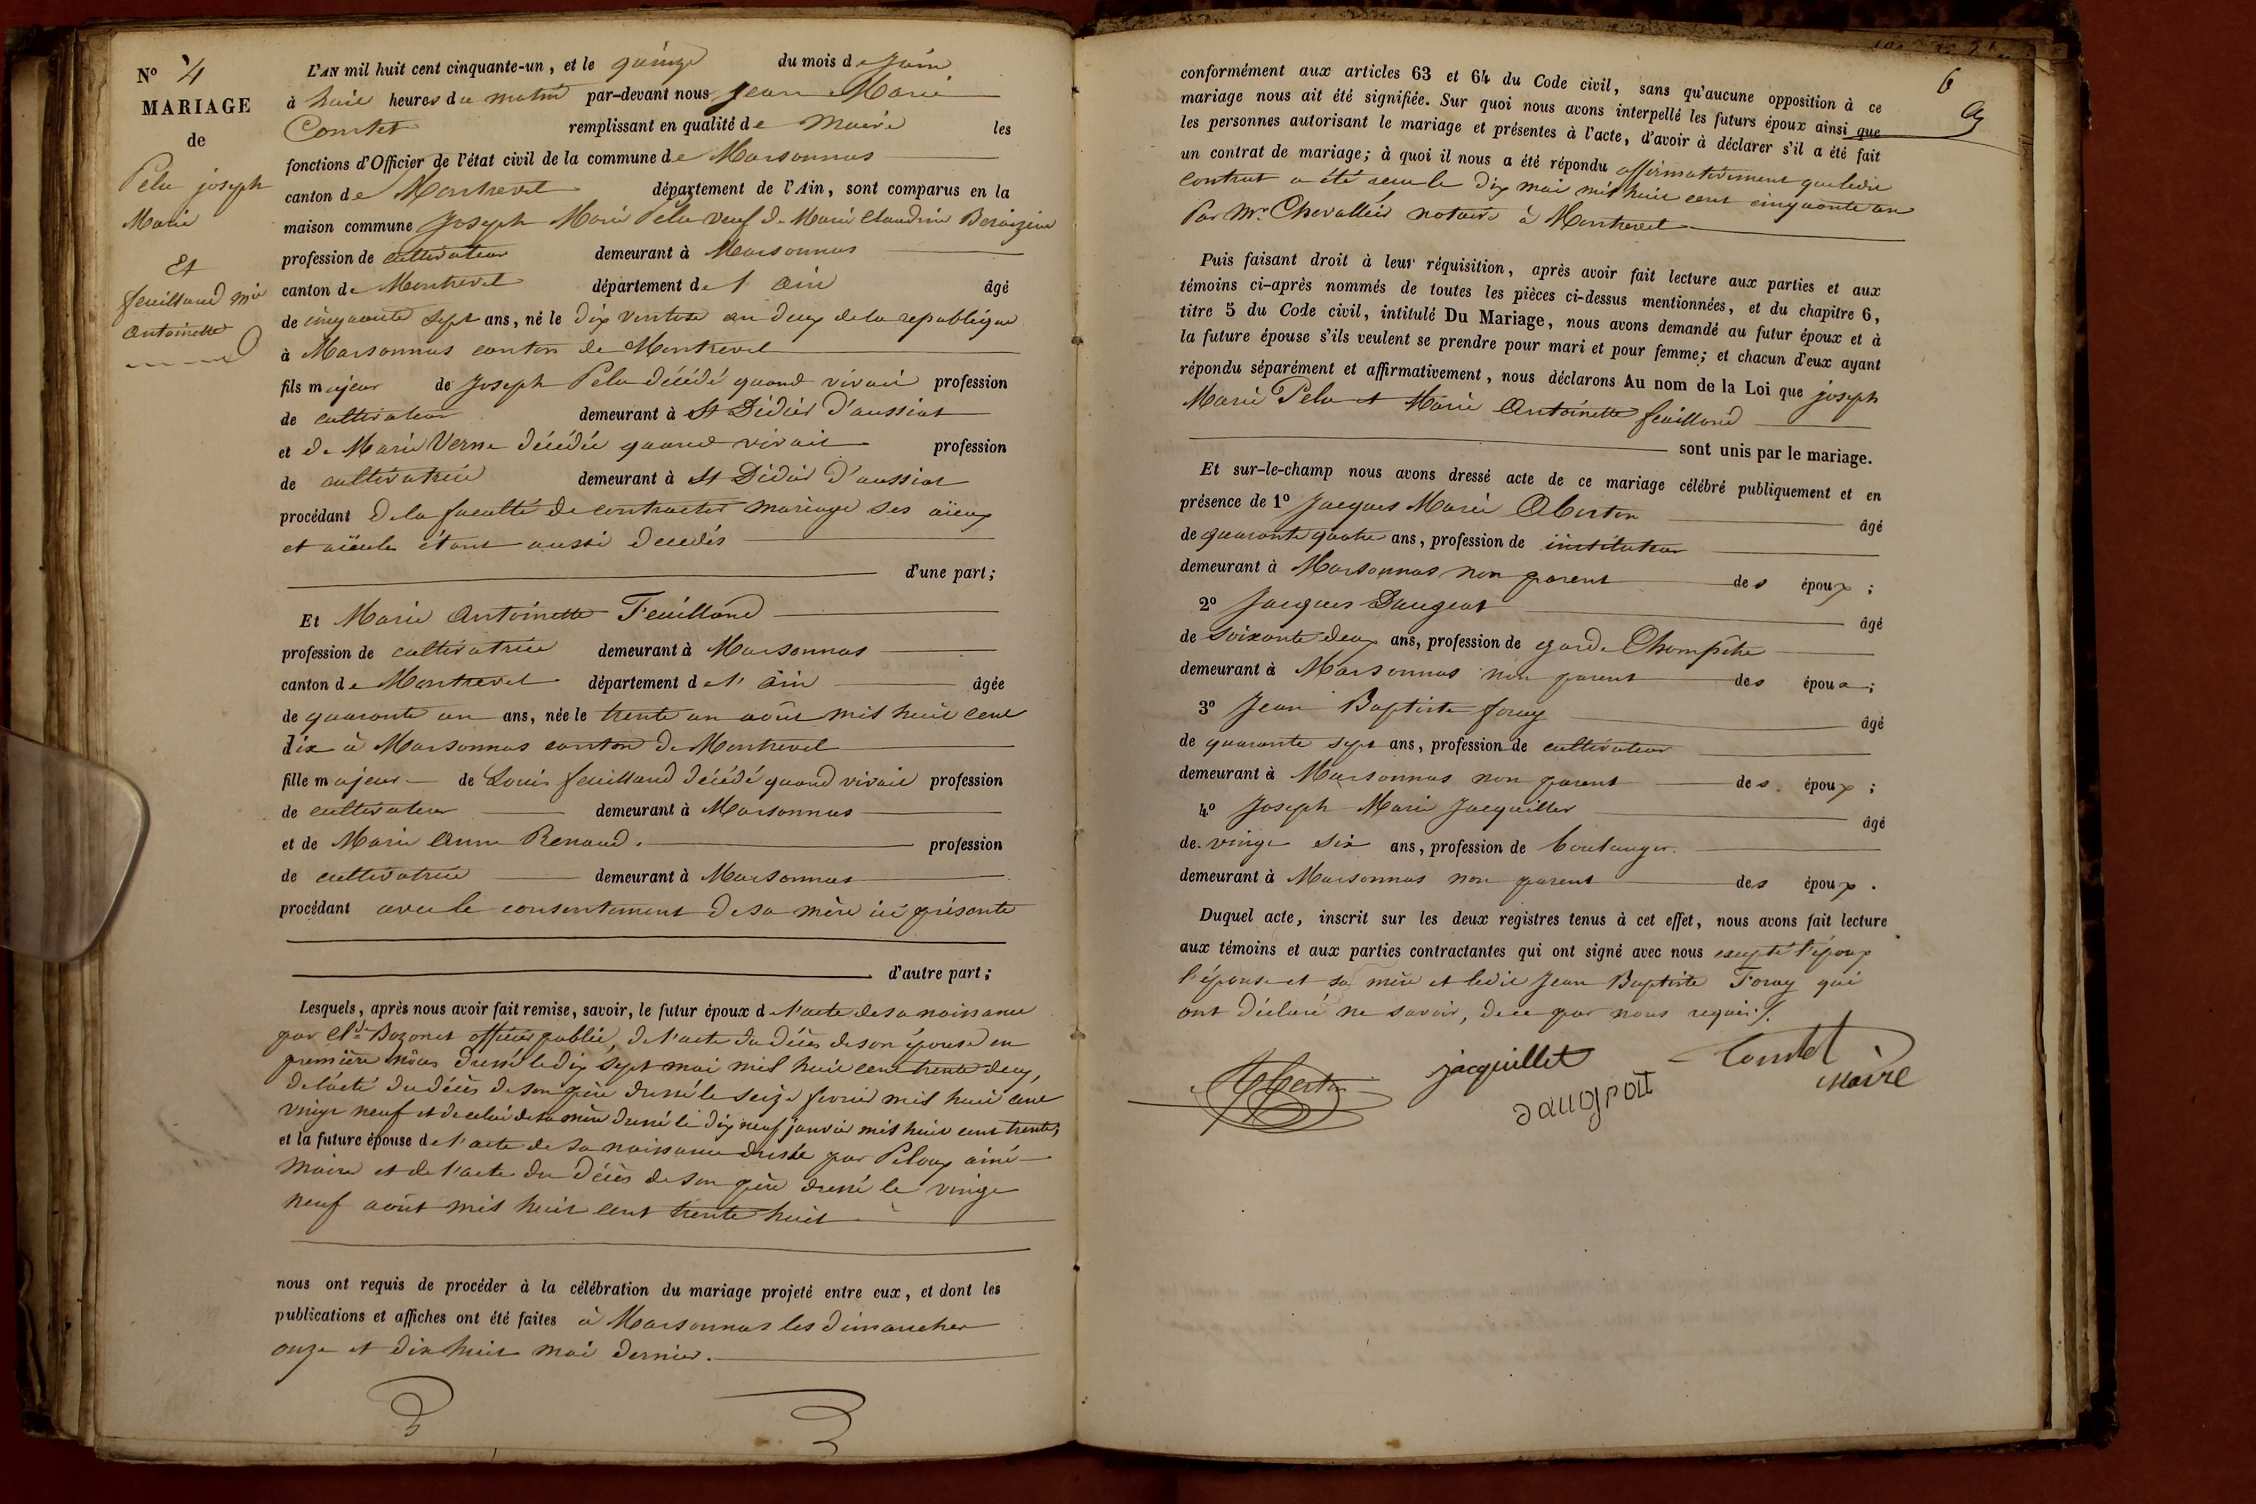 N° 4
MARIAGE
de
Pelu joseph
Marie
Et
feuilland mie
antoinette
L'AN mil huit cent cinquante-un, et le quinze du mois de Juin
à huit heures du matin par-devant nous Jean Marie
Comtet remplissant en qualité de Maire les
fonctions d'Officier de l'état civil de la commune de Marsonnas
canton de Montrevel département de l'Ain, sont comparus en la
maison commune Joseph Marie Pelu veuf de Marie Claudine
profession de cultivateur demeurant à Marsonnas
canton de Montrevel département de l'ain âgé
de cinquante sept ans, né le dix ventose an deux de la republique
à Marsonnas canton de Montrevel
fils majeur de Joseph Pelu décédé quand vivait profession
de cultivateur demeurant à St Didier d'aussiat
et de Marie Verne décédée quand vivait profession
de cultivatrice demeurant à St Didier d'aussiat
procédant de la faculté de contracter mariage ses aïeux
et aïeules étant aussi décédés
d'une part;
Et Marie Antoinette Feuilland
profession de cultivatrice demeurant à Marsonnas
canton de Montrevel département de l'ain âgée
de quarante un ans, née le trente un août mil huit cent
dix à Marsonnas canton de Montrevel
fille majeure de Louis feuilland décédé quand vivait profession
de cultivateur demeurant à Marsonnas
et de Marie Anne Renaud. profession
de cultivatrice demeurant à Marsonnas
procédant avec le consentement de sa mère ici présente
d'autre part;
Lesquels, après nous avoir fait remise, savoir, le futur époux de l'acte de sa naissance
par Cl.de Bozonet officier public, de l'acte du décès de son épouse en
première nôces dressé le dix sept mai mil huit cent trente deux,
de l'acte du décès de son père dressé le seize fevrier mil huit cent
vingt neuf et de celui de sa mère dressé le dix neuf janvier mil huit cent trente;
et la future épouse de l'acte de sa naissance dressé par Peloux ainé
Maire et de l'acte du décès de son père dressé le vingt
neuf août mil huit cent trente huit
nous ont requis de procéder à la célébration du mariage projeté entre eux, et dont les
publications et affiches ont été faites à Marsonnas les dimanches
onze et dix huit mai dernier.
6
conformément aux articles 63 et 64 du Code civil, sans qu'aucune opposition à ce
mariage nous ait été signifiée. Sur quoi nous avons interpellé les futurs époux ainsi que
les personnes autorisant le mariage et présentes à l'acte, d'avoir à déclarer s'il a été fait
un contrat de mariage; à quoi il nous a été répondu affirmativement que ledit
contrat a été recu le dix mai mil huit cent cinquante un
Par Mr. Chevallier notaire à Montrevel
Puis faisant droit à leur réquisition, après avoir fait lecture aux parties et aux
témoins ci-après nommés de toutes les pièces ci-dessus mentionnées, et du chapitre 6,
titre 5 du Code civil, intitulé Du Mariage, nous avons demandé au futur époux et à
la future épouse s'ils veulent se prendre pour mari et pour femme; et chacun d'eux ayant
répondu séparément et affirmativement, nous déclarons Au nom de la Loi que joseph
Marie Pelu et Marie Antoinette feuilland
sont unis par le mariage.
Et sur-le-champ nous avons dressé acte de ce mariage célébré publiquement et en
présence de 1° Jacques Marie Oberton âgé
de quarante quatre ans, profession de instituteur
demeurant à Marsonnas non parent des époux;
2° Jacques Daugeat âgé
de soixante deux ans, profession de garde Champêtre
demeurant à Marsonnas non parent des époux;
3° Jean Baptiste foray âgé
de quarante sept ans, profession de cultivateur
demeurant à Marsonnas non parent des époux;
4° Joseph Marie Jacquillet âgé
de vingt six ans, profession de boulanger.
demeurant à Marsonnas non parent des époux.
Duquel acte, inscrit sur les deux registres tenus à cet effet, nous avons fait lecture
aux témoins et aux parties contractantes qui ont signé avec nous excepté l'époux
l'épouse et sa mère et ledit Jean Baptiste Foray qui
ont déclaré ne savoir, de ce par nous requis./.
jacquillet
Comtet
Maire